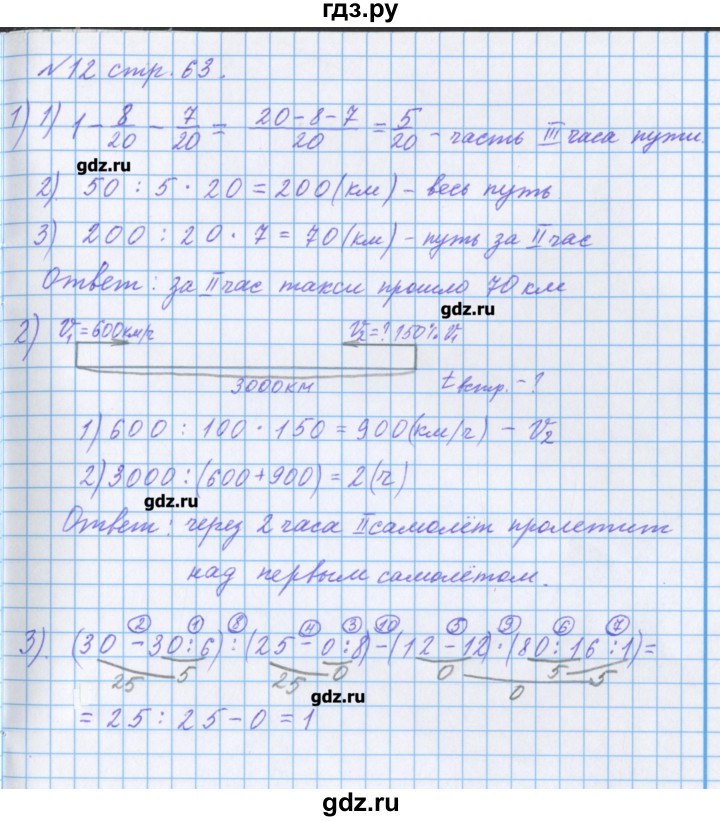 гдз.ру
№12 стр. 63.
1) 1) 1 - 8/20 - 7/20 = (20-8-7)/20 = 5/20 - часть III часа пути.
gdz.ru
2) 50 : 5 · 20 = 200 (км) - весь путь
3) 200 : 20 · 7 = 70 (км) - путь за II час
Ответ: за II час такси прошло 70 км
gdz.ru
2) V₁ = 600 км/ч V₂ = ? 150% V₁
3000 км t встр. - ?
1) 600 : 100 · 150 = 900 (км/ч) - V₂
2) 3000 : (600 + 900) = 2 (ч)
gdz.ru
Ответ: через 2 часа II самолёт пролетит
над первым самолётом.
2 1 8 4 3 10 5 9 6 7
3). (30 - 30 : 6) : (25 - 0 : 8) - (12 - 12) · (80 : 16 : 1) =
25 5 25 0 0 0 5 5
gdz.ru
= 25 : 25 - 0 = 1
gdz.ru